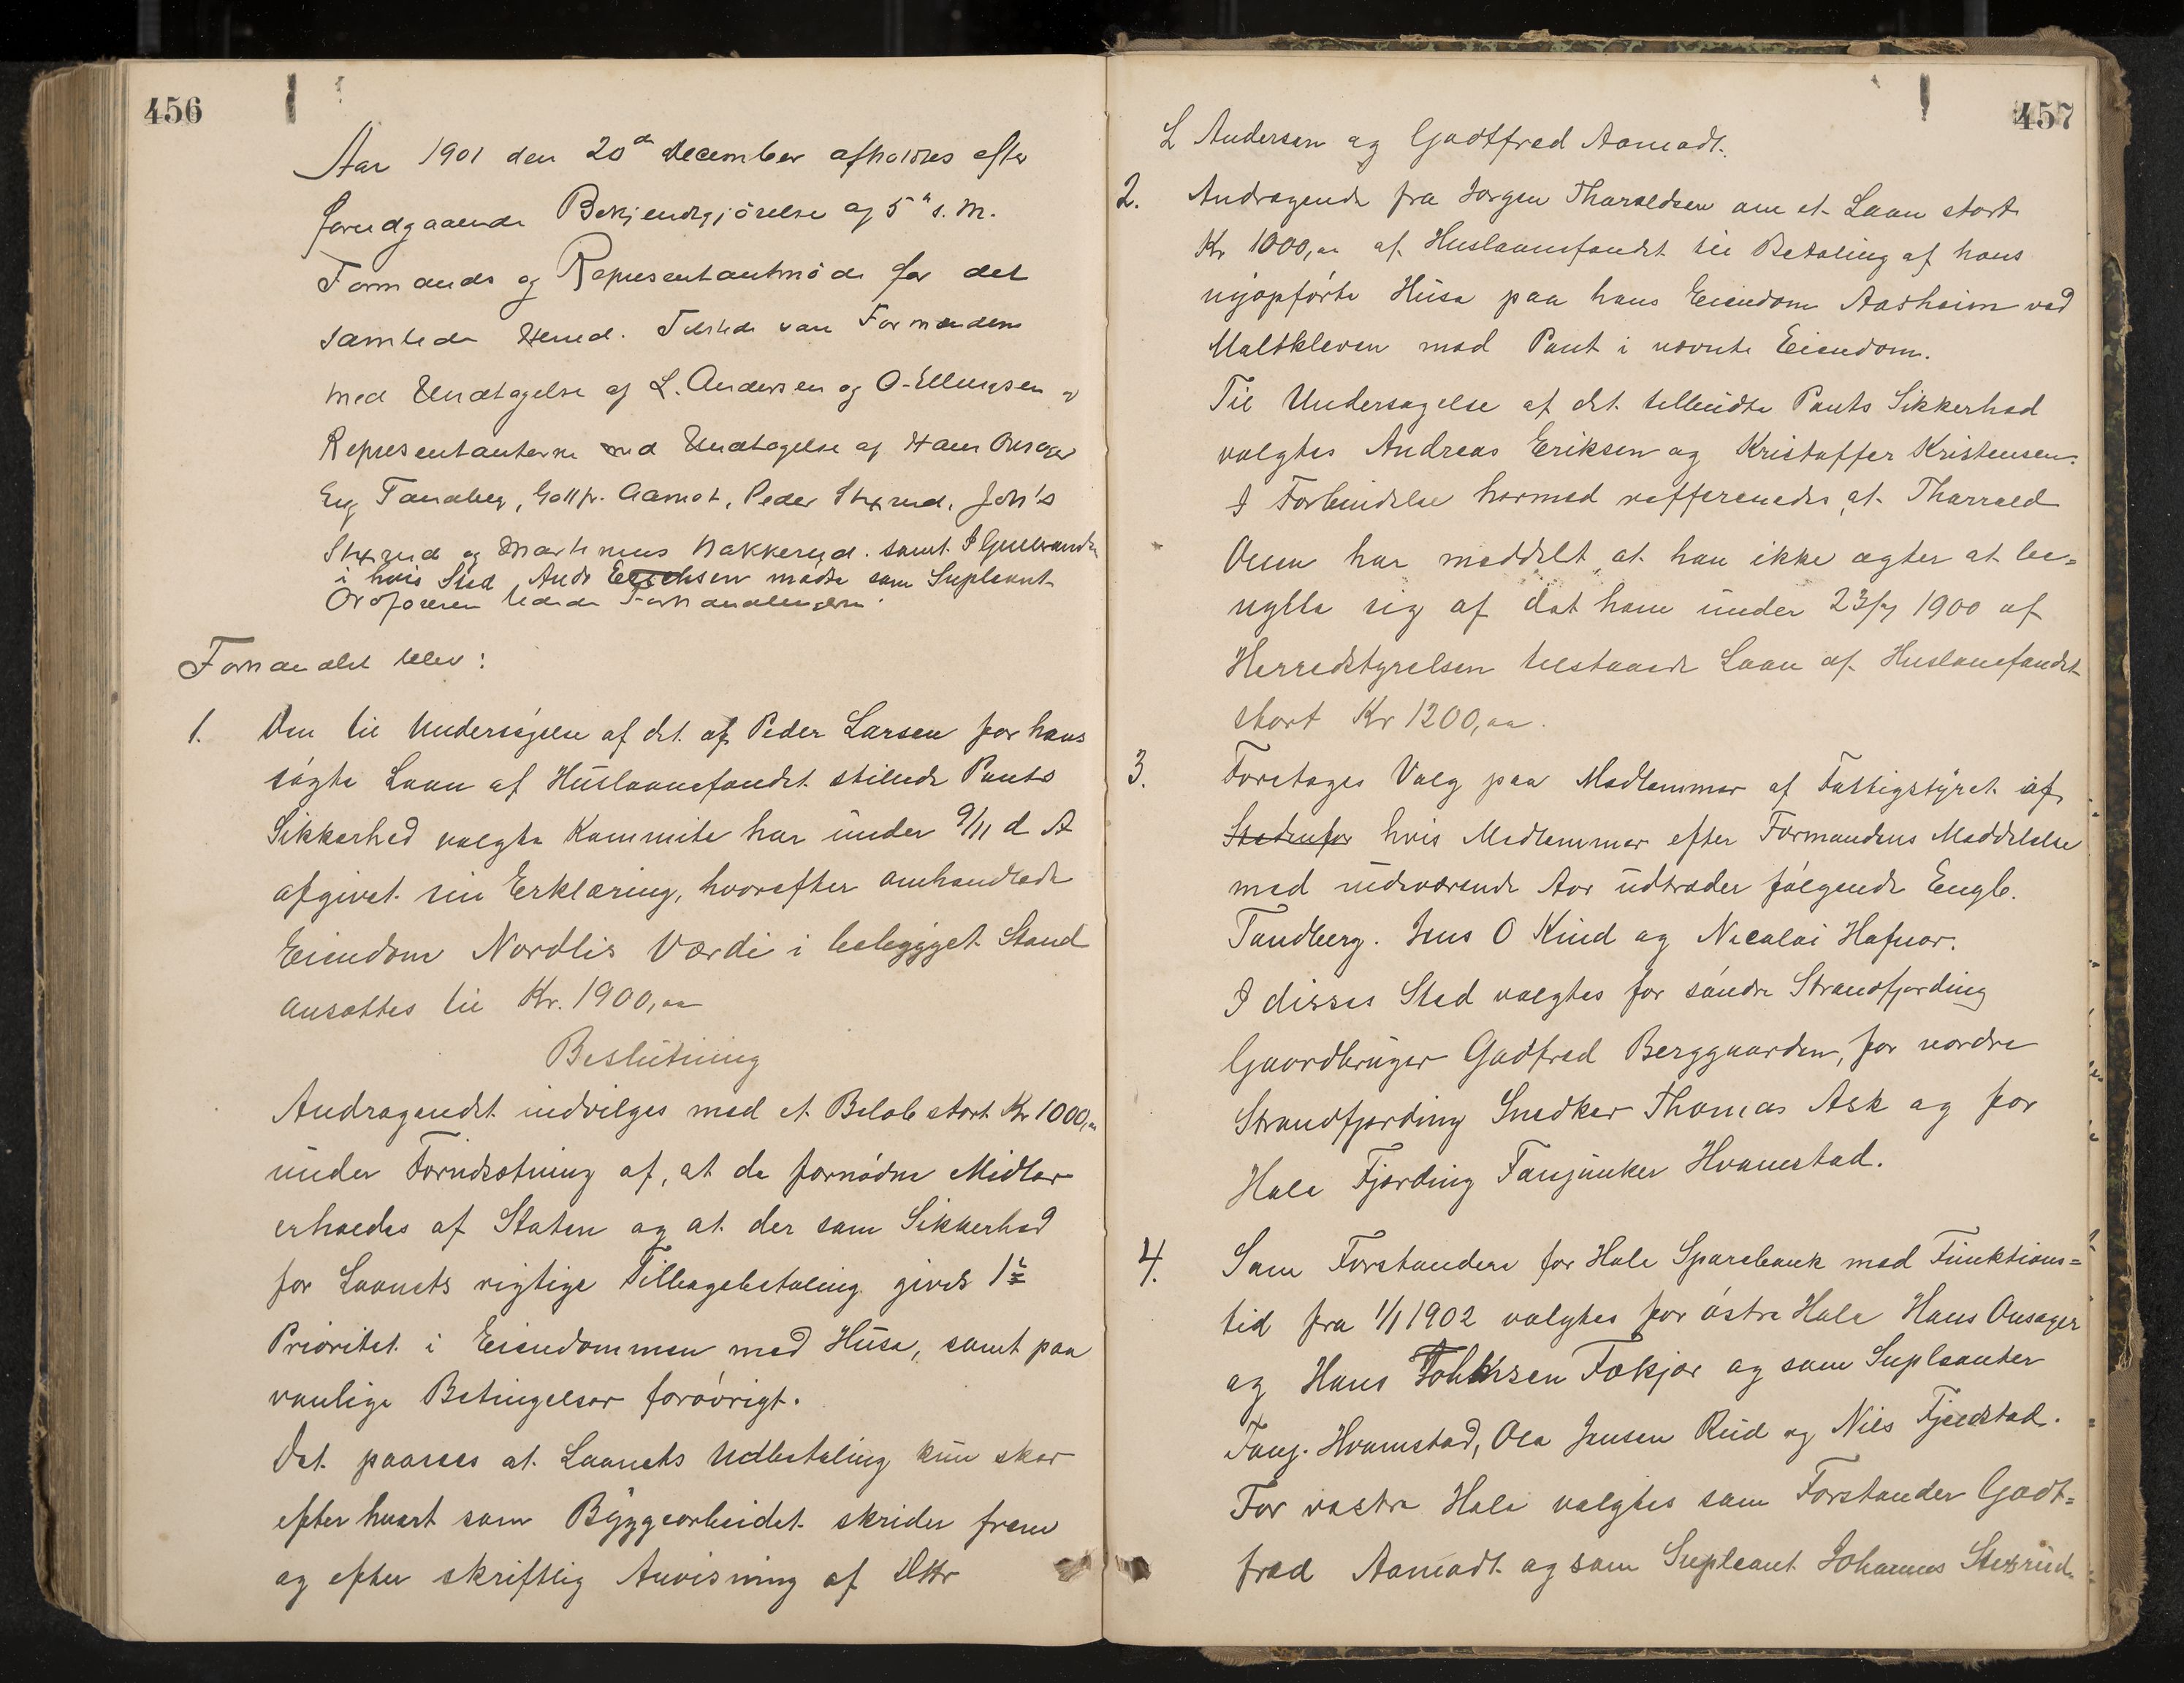 456
Aar 1901 den 20de December afholdtes efter
forudgaaende Bekjendtgjörelse af 5te s. M.
Formands og Representantmöde for det
samlede Herred. Tilstede vare Formændene
med Undtagelse af L. Andersen og O. Ellingsen og
Representanterne med Undtagelse af Hans Onsager
Eng Tandberg, Gottfr. Aamot, Peder Stxrud, Joh's
Stxrud og Martinius Nakkerud. samt I Gulbrandsen
i hvis Sted Ands Erichsen mødte som Supleant
Ordföreren ledede Forhandlingerne.
Forhandlet blev:
1. Den til Undersögelse af det af Peder Larsen for hans
sögte Laan af Huslaanefondet stillede Pants
Sikkerhed valgte Kommite har under 9/11 d A
afgivet sin Erklæring, hvorefter omhandlede
Eiendom Nordlis Værdi i bebygget Stand
ansættes til Kr. 1900,oo
Beslutning
Andragendet indvilges med et Beløb stort Kr 1000,oo
under Forudsætning af, at de fornødne Midler
erholdes af Staten og at der som Sikkerhed
for Laanets rigtige Tilbagebetaling gives 1ste
Prioritet i Eiendommen med Huse, samt paa
vanlige Betingelser forøvrigt.
Det paasees at Laanets Udbetaling kun sker
efter hvert som Byggearbeidet skrider frem
og efter skriftlig Anvisning af DHrr
457
L Andersen og Godtfred Aamodt.
2. Andragende fra Jørgen Tharaldsen om et Laan stort
Kr 1000,oo af Huslaanefondet til Betaling af hans
nyopførte Huse paa hans Eiendom Aasheim ved
Maltkleven mod Pant i nævnte Eiendom.
Til Undersøgelse af det tilbudte Pants Sikkerhed
valgtes Andreas Eriksen og Kristoffer Kristensen.
I Forbindelse hermed refferedes, at Tharald
Ouen har meddelt, at han ikke agter at be=
nytte sig af det ham under 23/7 1900 af
Herredstyrelsen tilstaaede Laan af Huslanefondet
stort Kr 1200,oo.
3. Foretages Valg paa Medlemmer af Fattigstyret af
Stedenfor hvis Medlemmer efter Formandens Meddelelse
med indeværende Aar udtræder følgende Engb.
Tandberg. Jens O Kind og Nicolai Hafnor.
I disses Sted valgtes for söndre Strandfjerding
Gaardbruger Godfred Berggaarden, for nordre
Strandfjerding Snedker Thomas Ask og for
Hole Fjerding Fanejunker Hvamstad.
4. Som Forstandere for Hole Sparebank med Funktions=
tid fra 1/1 1902 valgtes for östre Hole Hans Onsager
og Hans Fokjær og som Supleanter
Fanj. Hvamstad, Ole Jensen Rud og Nils Fjeldstad.
For vestre Hole valgtes som Forstander Godt=
fred Aamodt og som Supleant Johannes Stexrud.